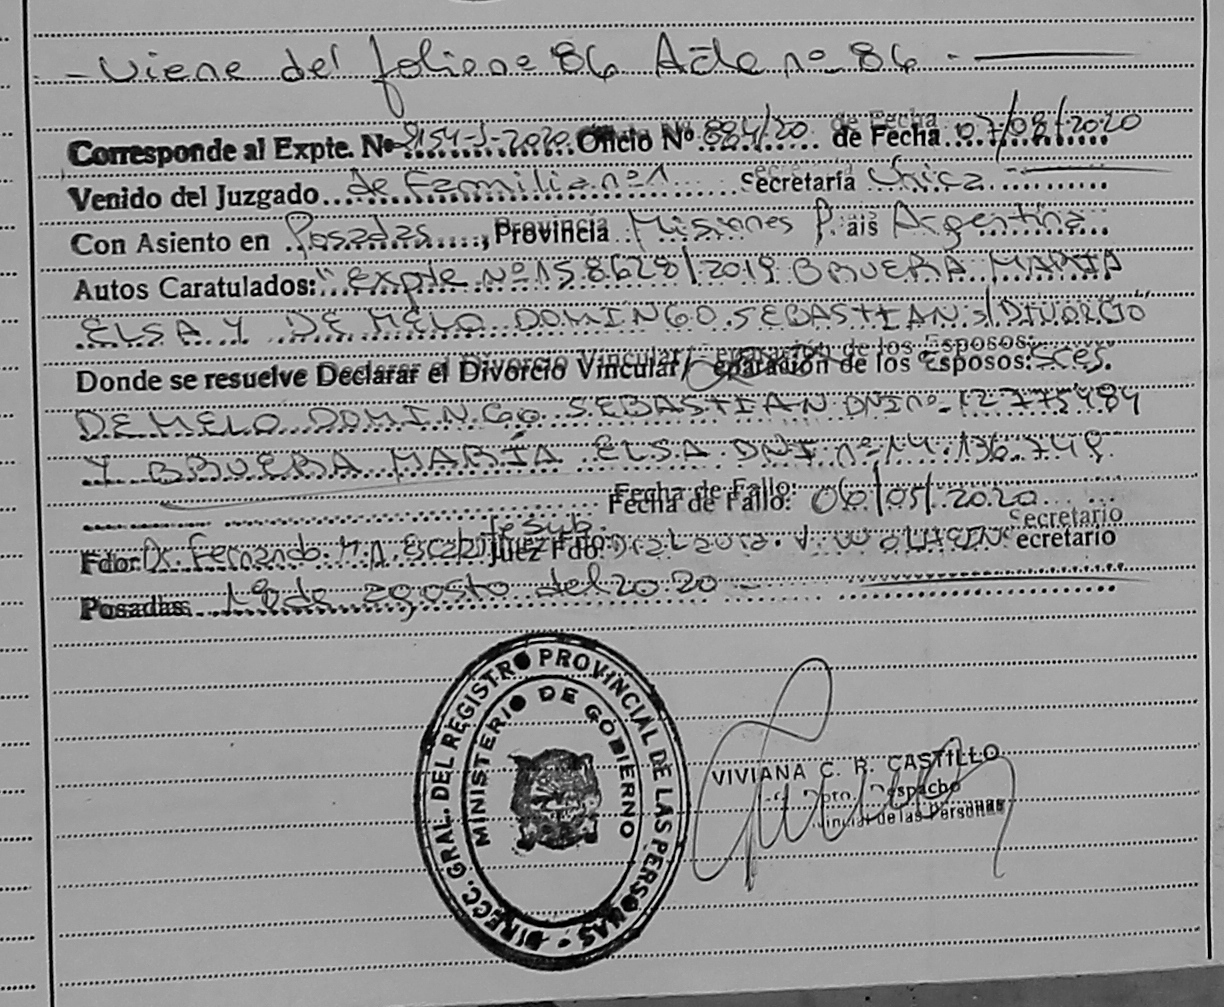 - Viene del folio nº 86 Acta nº 86 -
Corresponde al Expte. Nº 2154-J-2020 Oficio Nº 884/20 de Fecha 07/08/2020
Venido del Juzgado de Familia nº 1 Secretaría Única
Con Asiento en Posadas, Provincia Misiones País Argentina
Autos Caratulados: "Expte Nº 158628/2019 BRUERA MARIA
ELSA Y DE MELO DOMINGO SEBASTIAN s/ DIVORCIO"
Donde se resuelve Declarar el Divorcio Vincular/ eparación de los Esposos: Sres.
DE MELO DOMINGO SEBASTIAN DNI nº 12.775.484
Y BRUERA MARÍA ELSA DNI nº 14.136.748
Fecha de Fallo: 06/05/2020
Fdor Dr. Fernando M.A. Juez Fdo: Secretario
Posadas 19 de agosto del 2020 -
DIRECC. GRAL. DEL REGISTRO PROVINCIAL DE LAS PERSONAS -
MINISTERIO DE GOBIERNO
VIVIANA C. R. CASTILLO
Dpto. Despacho
incial de las Personas